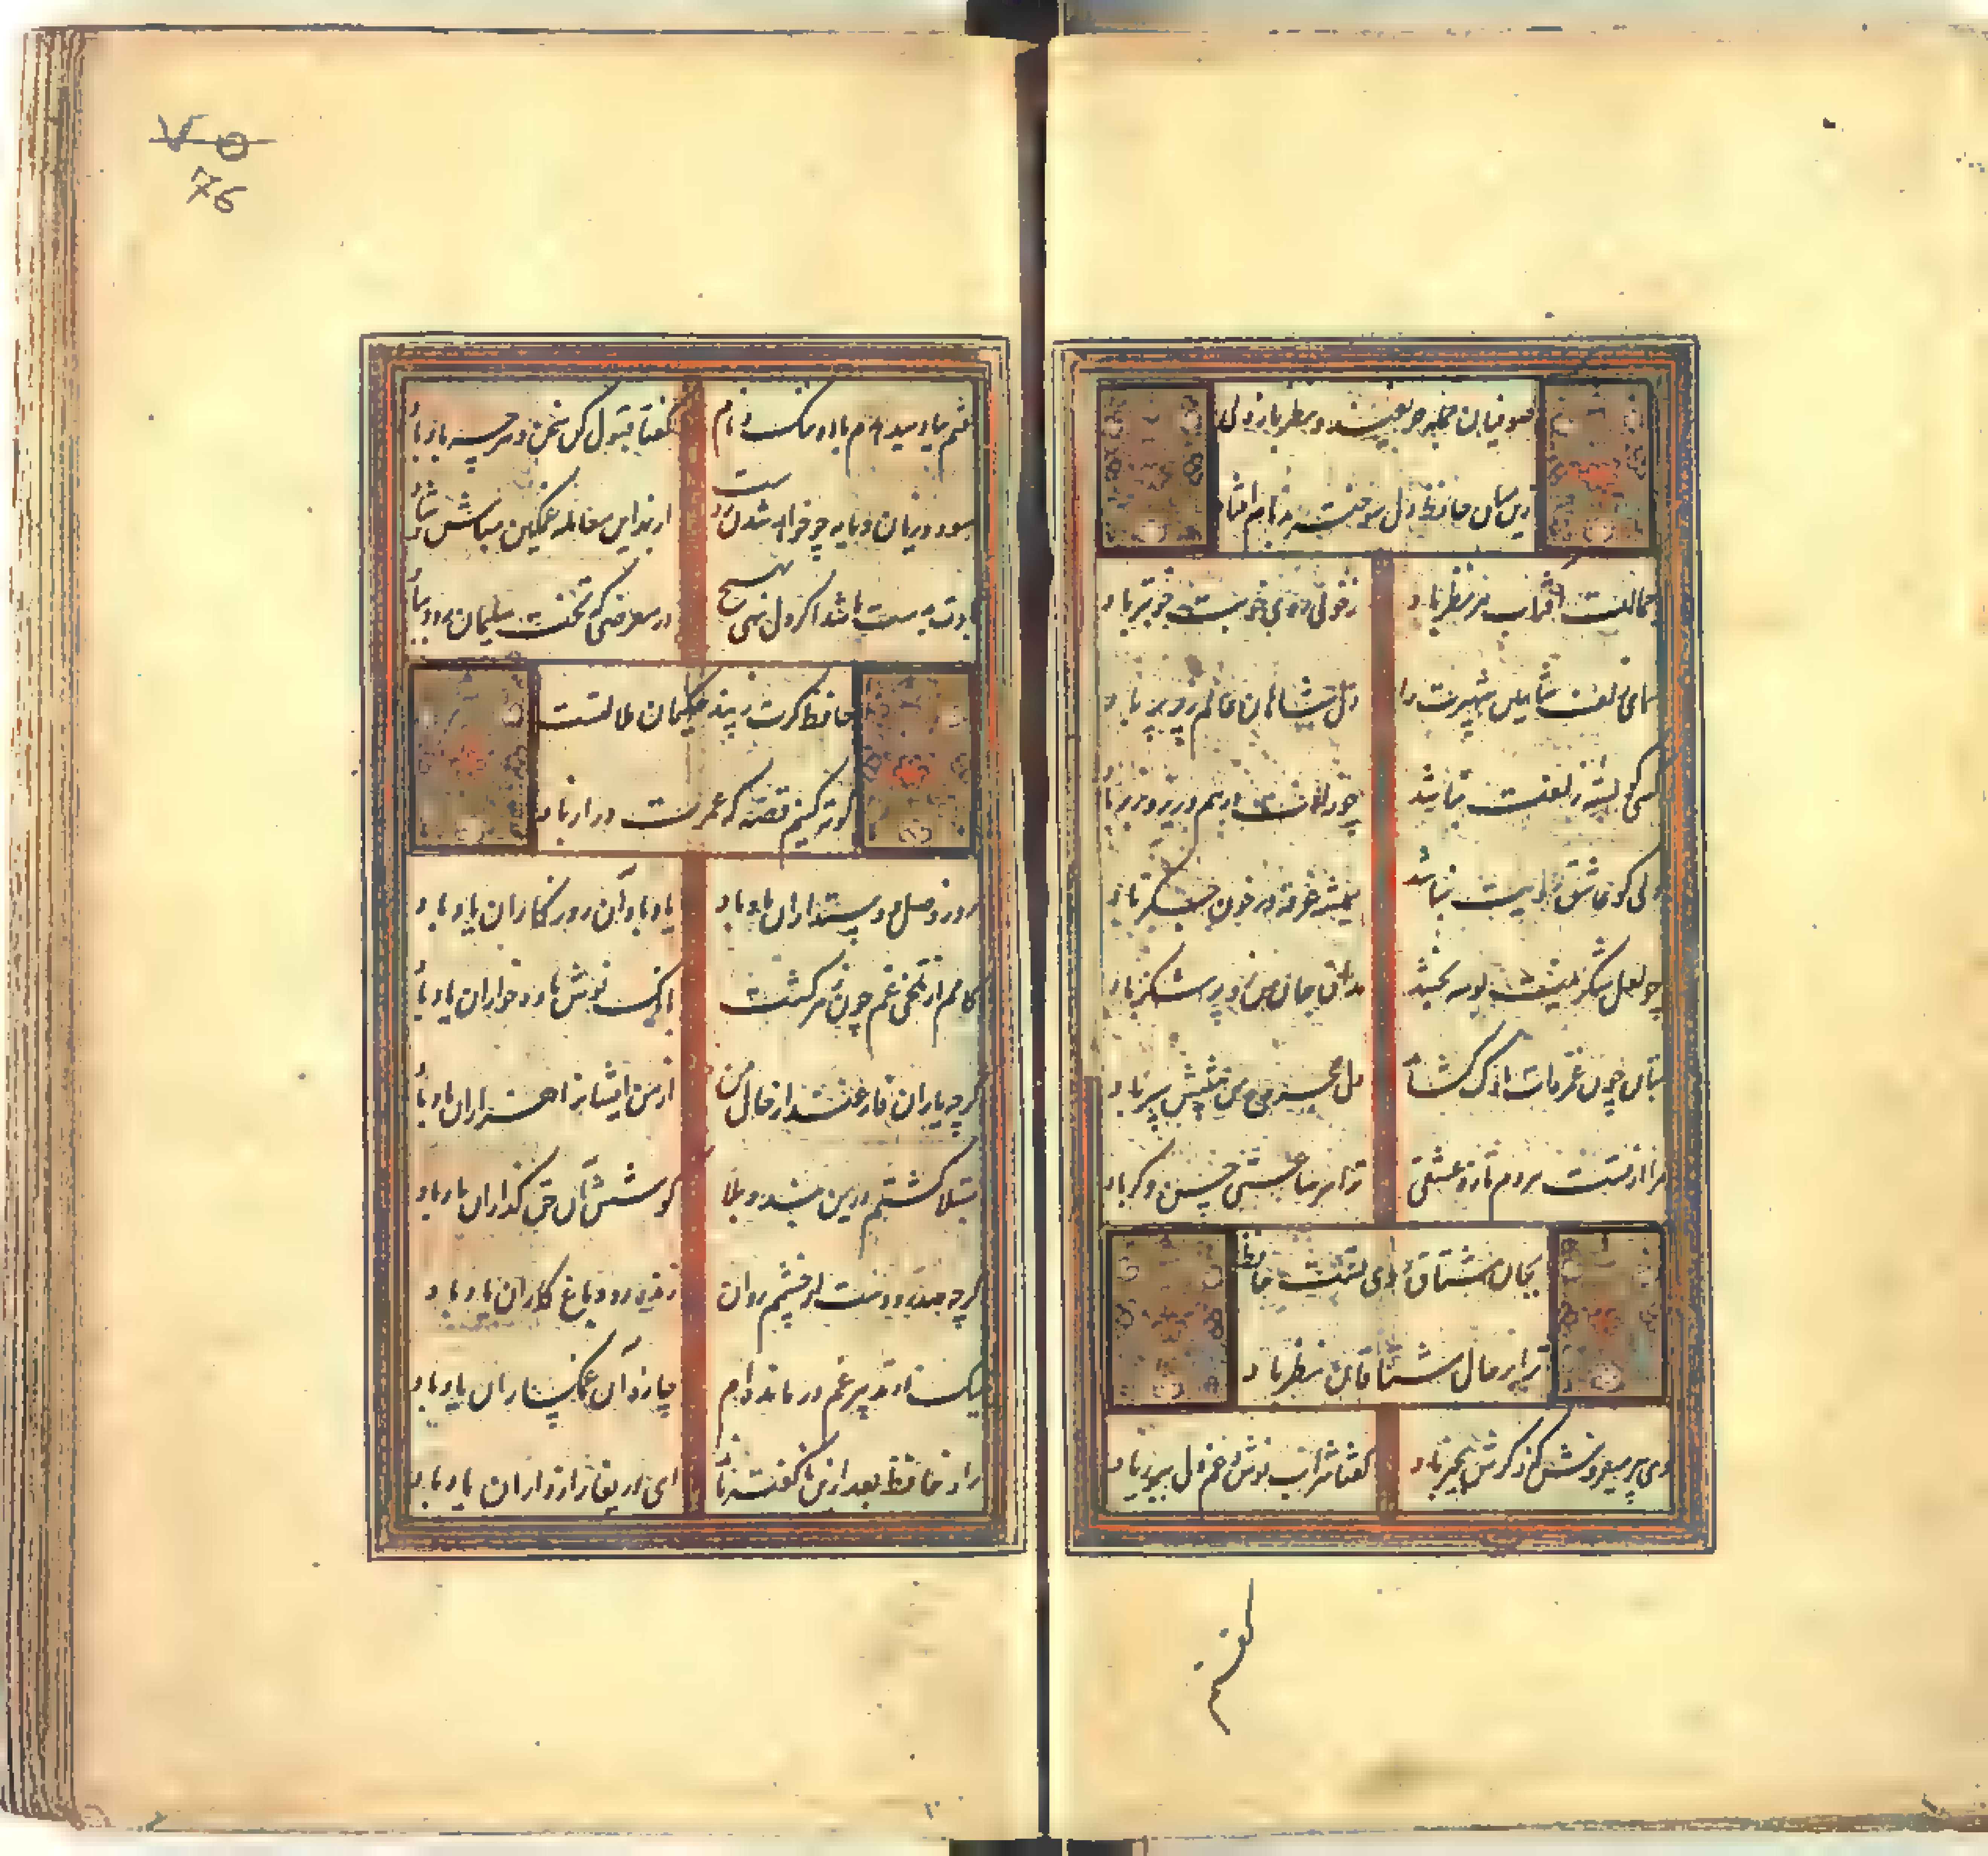 صوفیان جمله حریفند و نظرباز ولی
زین میان حافظ دل سوخته بدنام افتاد
جمالت آفتاب هر نظر باد ز خوبی روی خوبت خوبتر باد
همای زلف شاهین شهپرت را دل شاهان عالم زیر پر باد
کسی کو بسته زلفت نباشد چو زلفت درهم و زیر و زبر باد
دلی کو عاشق رویت نباشد همیشه غرقه در خون جگر باد
چو لعل شکرینت بوسه بخشد مذاق جان من زو پر شکر باد
بتا چون غمزه‌ات ناوک گشاید دل مجروح من پیشش سپر باد
مرا از تست هر دم تازه عشقی ترا هر ساعتی حسنی دگر باد
بجان مشتاق روی تست حافظ
ترا بر حال مشتاقان نظر باد
دی پیر میفروش که ذکرش بخیر باد گفتا شراب نوش و غم دل ببر ز یاد
گفتم
گفتم بباد میدهدم باده ننگ و نام گفتا قبول کن سخن و هر چه باد باد
سود و زیان و مایه چو خواهد شدن ز دست از بهر این معامله غمگین مباش و شاد
بادت بدست باشد اگر دل نهی بهیچ در معرضی که تخت سلیمان رود بباد
حافظ گرت ز پند حکیمان ملالتست
کوته کنیم قصه که عمرت دراز باد
روز وصل دوستداران یاد باد یاد باد آن روزگاران یاد باد
کامم از تلخی غم چون زهر گشت بانگ نوش باده خواران یاد باد
گر چه یاران فارغند از حال من از من ایشان را هزاران یاد باد
مبتلا گشتم درین بند و بلا کوشش آن حق گذاران یاد باد
گر چه صد رودست از چشمم روان زنده رود و باغ کاران یاد باد
لیک تا در تدبیر غم درمانده‌ام چاره آن غمگساران یاد باد
راز حافظ بعد ازین ناگفته ماند ای دریغا رازداران یاد باد
۷۵
76